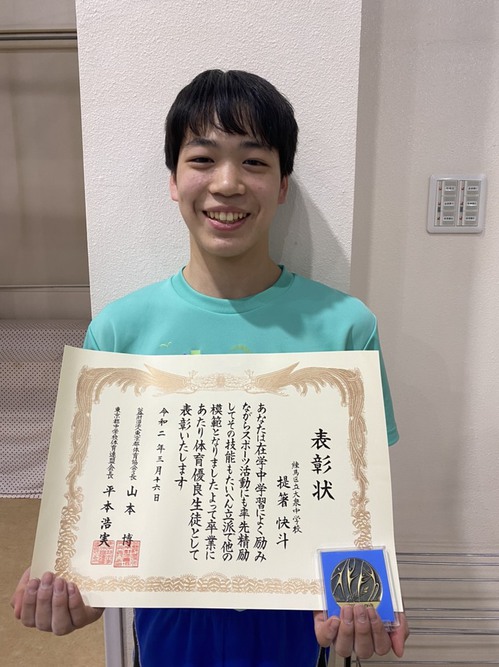 表彰状
練馬区立大泉中学校
提箸快斗
あなたは在学中学習によく励み
ながらスポーツ活動にも率先精励
してその技能もたいへん立派で他の
模範となりましたよって卒業に
あたり体育優良生徒として
表彰いたします
令和二年三月十六日
公益財団法人東京都体育協会会長 山本 博
東京都中学校体育連盟会長 平本浩実